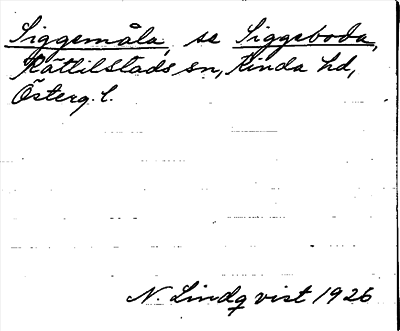 Siggemåla, se Siggeboda,
Kättilstads sn, Kinda hd,
Österg. l.
N. Lindqvist 1926